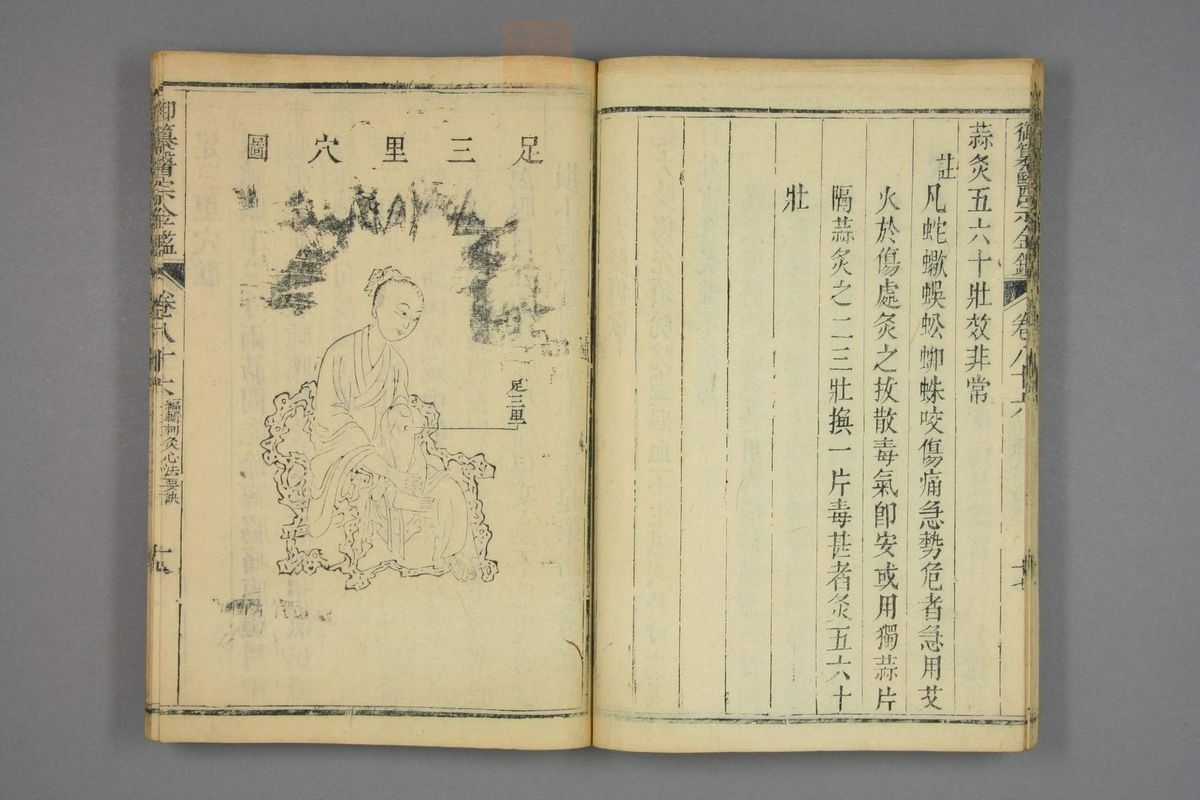 御纂醫宗金鑑 卷八十六
蒜灸五六十壯效非常
註
凡蛇蠍蜈蚣蜘蛛咬傷痛急勢危者急用艾
火於傷處灸之拔散毒氣卽安或用獨蒜片
隔蒜灸之二三壯換一片毒甚者灸五六十
壯
足三里穴圖
足三里
御纂醫宗金鑑 卷八十六 編輯刺灸心法要訣